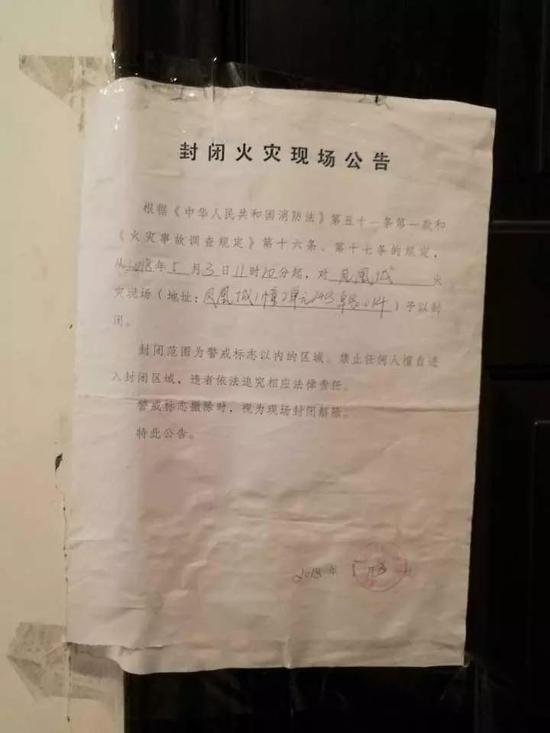 封闭火灾现场公告
根据《中华人民共和国消防法》第五十一条第一款和
《火灾事故调查规定》第十六条、第十七条的规定，
从2018年5月3日11时10分起，对 凤凰城 火
灾现场（地址：凤凰城1幢2单元）予以封
闭。
封闭范围为警戒标志以内的区域。禁止任何人擅自进
入封闭区域，违者依法追究相应法律责任。
警戒标志撤除时，视为现场封闭解除。
特此公告。
2018年5月3日